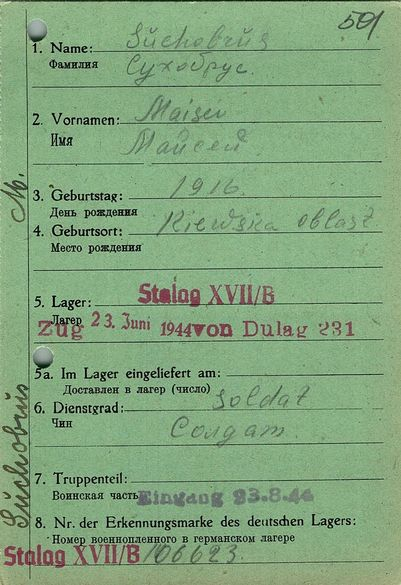 501
1. Name: Suchobrus
Фамилия Сухобрус.
2. Vornamen: Maisei
Имя Майсей
3. Geburtstag: 1916.
День рождения
4. Geburtsort: Kiewska oblast
Место рождения
5. Lager: Stalag XVII/B
Лагер
Zug 23. Juni 1944 von Dulag 231
5a. Im Lager eingeliefert am:
Доставлен в лагер (число)
6. Dienstgrad: Soldat
Чин Солдат.
7. Truppenteil:
Воинская часть Eingang 23.8.44
8. Nr. der Erkennungsmarke des deutschen Lagers:
Номер военнопленного в германском лагере
Stalag XVII/B 106623.
Suchobrus M.